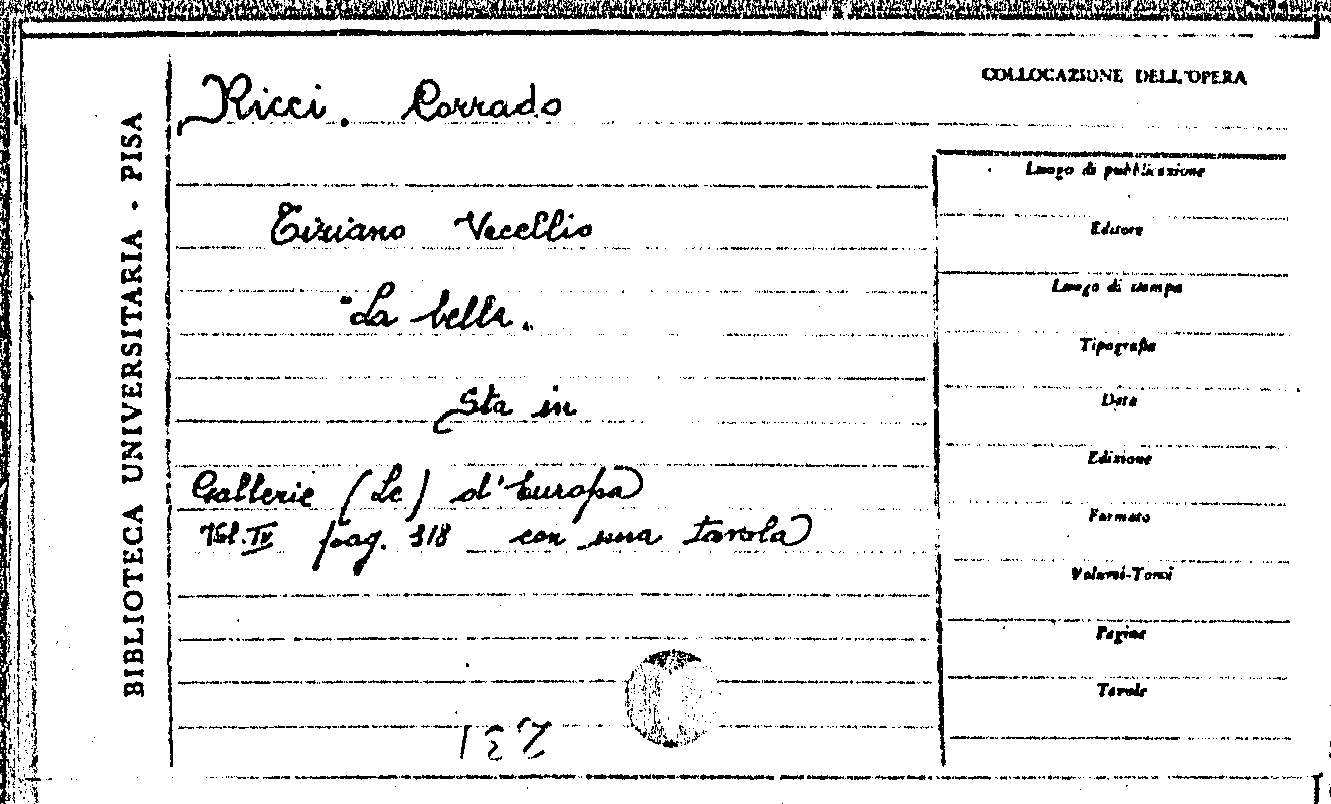 COLLOCAZIONE DELL'OPERA
Ricci, Corrado
Tiziano Vecellio
"La bella"
Sta in
Gallerie (Le) d'Europa
Vol. IV pag. 318 con una tavola
BIBLIOTECA UNIVERSITARIA - PISA
Luogo di pubblicazione
Editore
Luogo di stampa
Tipografia
Data
Edizione
Formato
Volumi-Tomi
Pagine
Tavole